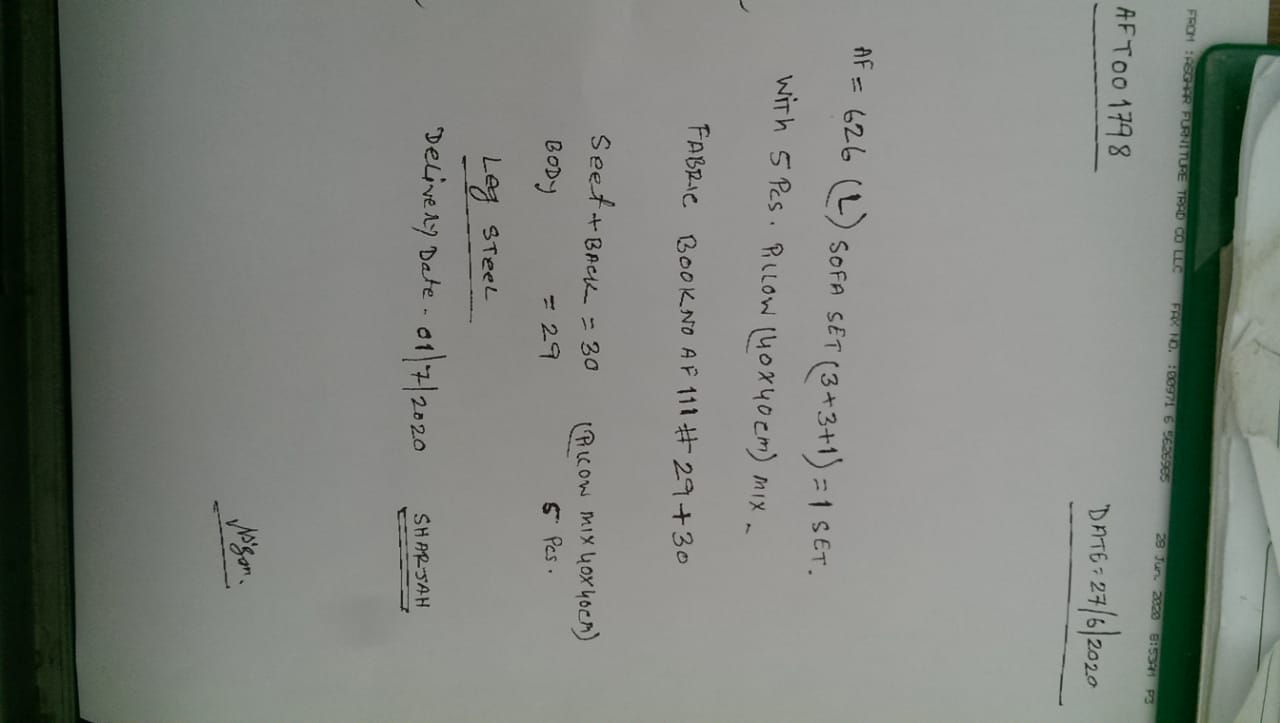 FROM : ASGHAR FURNITURE TRAD CO LLC FAX NO. : 00971 6 5626985 28 Jun. 2020 8:53AM P3
AFT001798
DATE = 27/6/2020
AF = 626 (L) SOFA SET (3+3+1) = 1 SET.
With 5 Pcs. PILLOW (40x40cm) MIX.
FABRIC BOOK NO AF 111 # 29+30
Seet + BACK = 30 (PILLOW MIX 40x40cm)
BODY = 29 5 Pcs.
Leg STeeL
DeLivery Date - 01/7/2020 SHARJAH